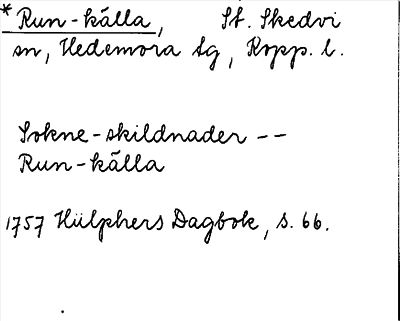 * Run-källa, St. Skedvi
sn, Hedemora tg, Kopp. l.
Sokne-skildnader --
Run-källa
1757 Hülphers Dagbok, s. 66.